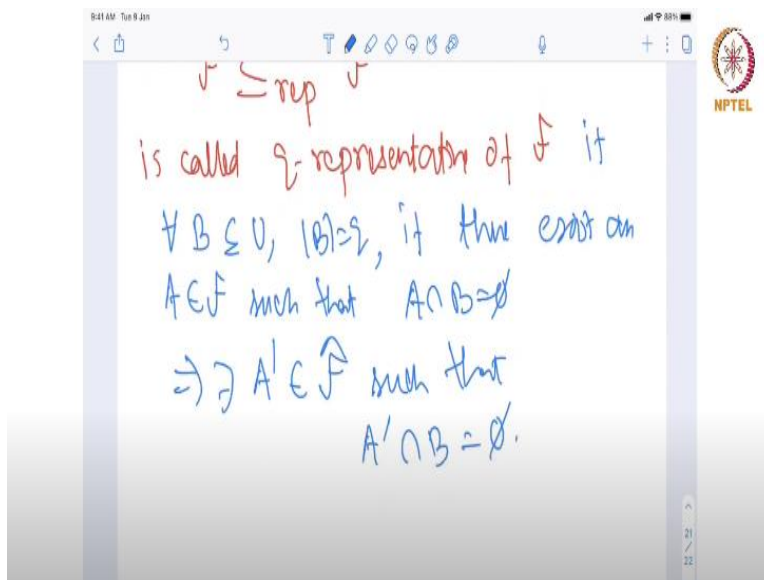 9:41 AM Tue 9 Jan
88%
NPTEL
⊆rep
is called q-representation of F if
∀ B ⊆ U, |B|=q, if there exist an
A ∈ F such that A ∩ B = ∅
⇒ ∃ A' ∈ F̂ such that
A' ∩ B = ∅.
21
/
22